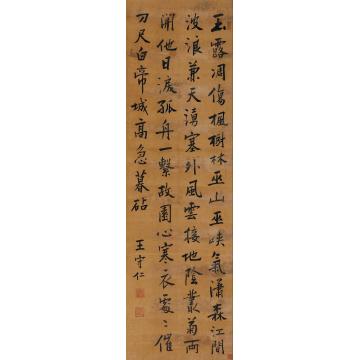 玉露凋傷楓樹林巫山巫峽氣瀟森江間
波浪兼天湧塞外風雲接地陰叢菊兩
開他日淚孤舟一繫故園心寒衣處〻催
刀尺白帝城高急暮砧
王守仁